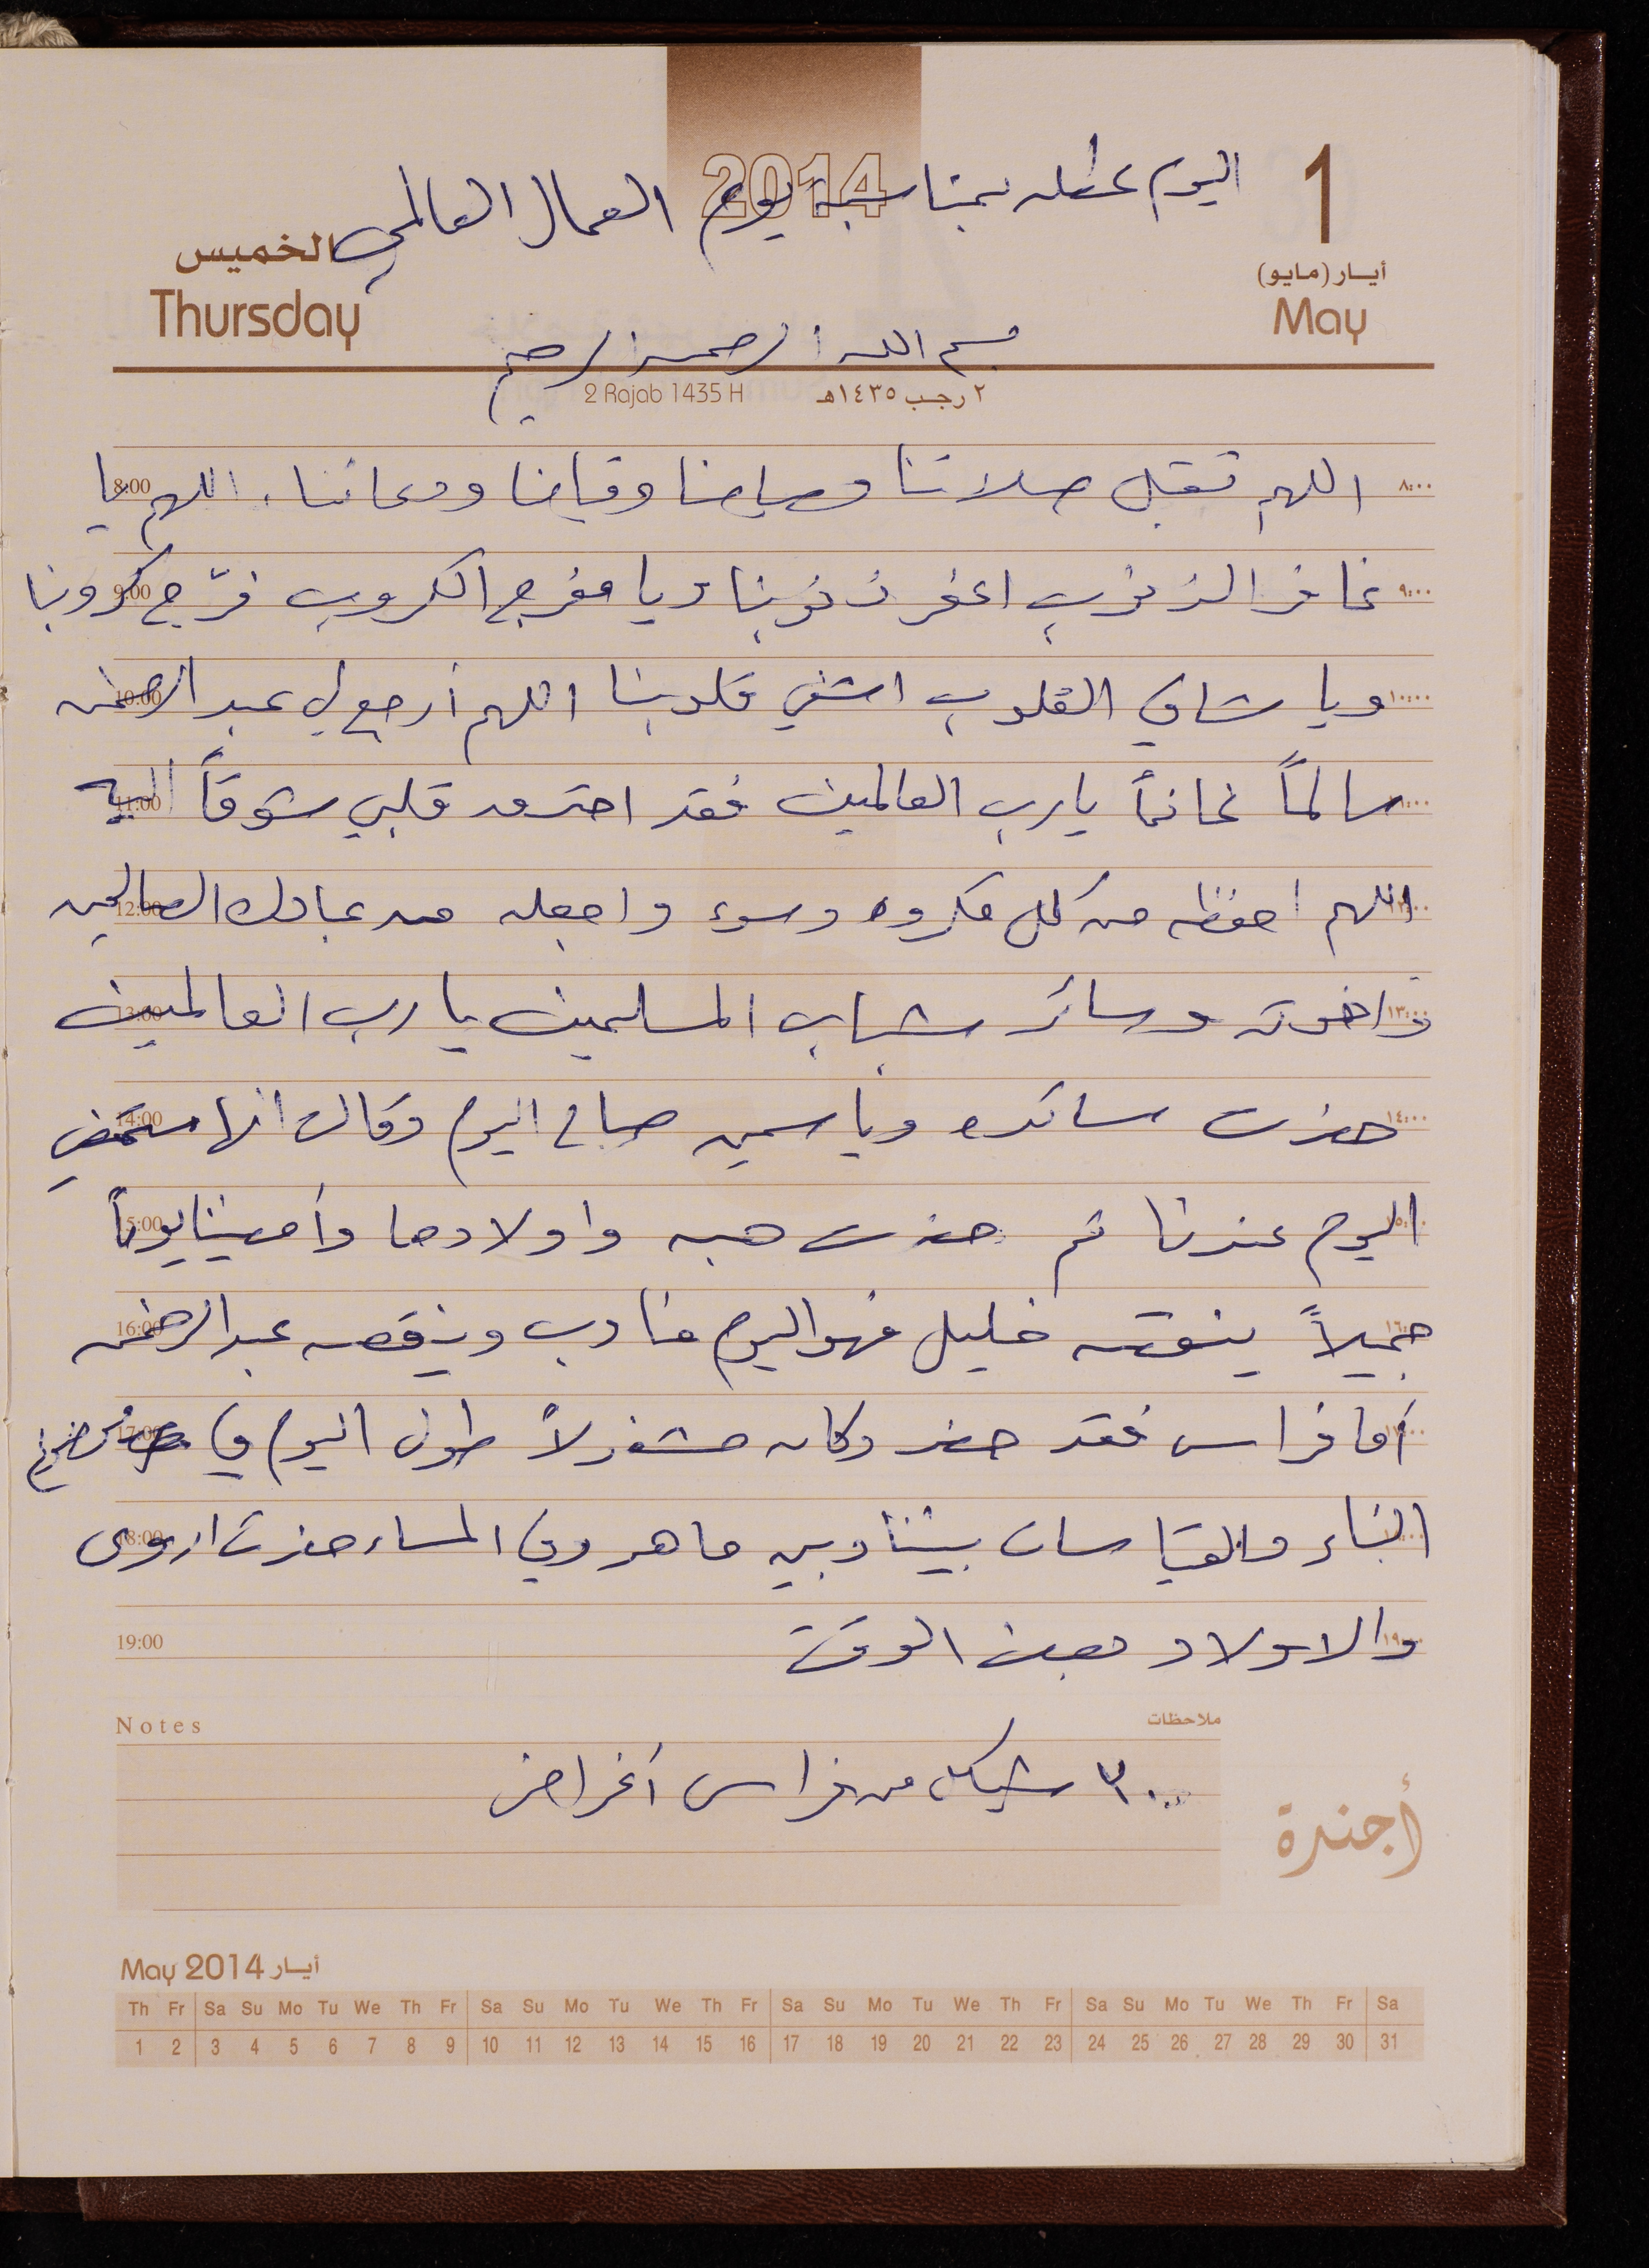 2014
1
اليوم عطله بمناسبة يوم العمال العالمي
الخميس
Thursday
أيـار (مايو)
May
بسم الله الرحمن الرحيم
2 Rajab 1435 H
٢ رجب ١٤٣٥هـ
8:00 اللهم تقبل صلاتنا وصيامنا وقيامنا ودعائنا . اللهم يا ٨:٠٠
9:00 غافر الذنوب اغفر ذنوبنا ويا مفرج الكروب فرّج كروبنا ٩:٠٠
10:00 ويا شافي القلوب اشفي قلوبنا اللهم أرجع لي عبد الرحمن ١٠:٠٠
11:00 سالماً غانماً يارب العالمين فقد احترق قلبي شوقاً اليه ١١:٠٠
12:00 اللهم احفظه من كل مكروه وسوء واجعله من عبادك الصالحين ١٢:٠٠
13:00 واخوته وسائر شباب المسلمين يا رب العالمين ١٣:٠٠
14:00 حضرت سائده وياسمين صباح اليوم وقالت انها ستمضي ١٤:٠٠
15:00 اليوم عندنا ثم حضرت هبه واولادها وأمضينا يوماً ١٥:٠٠
16:00 جميلاً ينقصه خليل فهو اليوم مناوب وينقصه عبد الرحمن ١٦:٠٠
17:00 أما فراس فقد حضر وكان مشغولاً طول اليوم في ١٧:٠٠
18:00 البناء والقياسات بيننا وبين ماهر وفي المساء حضرت اروى ١٨:٠٠
19:00 والاولاد بعض الوقت ١٩:٠٠
Notes
ملاحظات
٢٠٠ شيكل من فراس أغراض
أجندة
May 2014 أيـار
Th Fr Sa Su Mo Tu We Th Fr Sa Su Mo Tu We Th Fr Sa Su Mo Tu We Th Fr Sa Su Mo Tu We Th Fr Sa
1 2 3 4 5 6 7 8 9 10 11 12 13 14 15 16 17 18 19 20 21 22 23 24 25 26 27 28 29 30 31